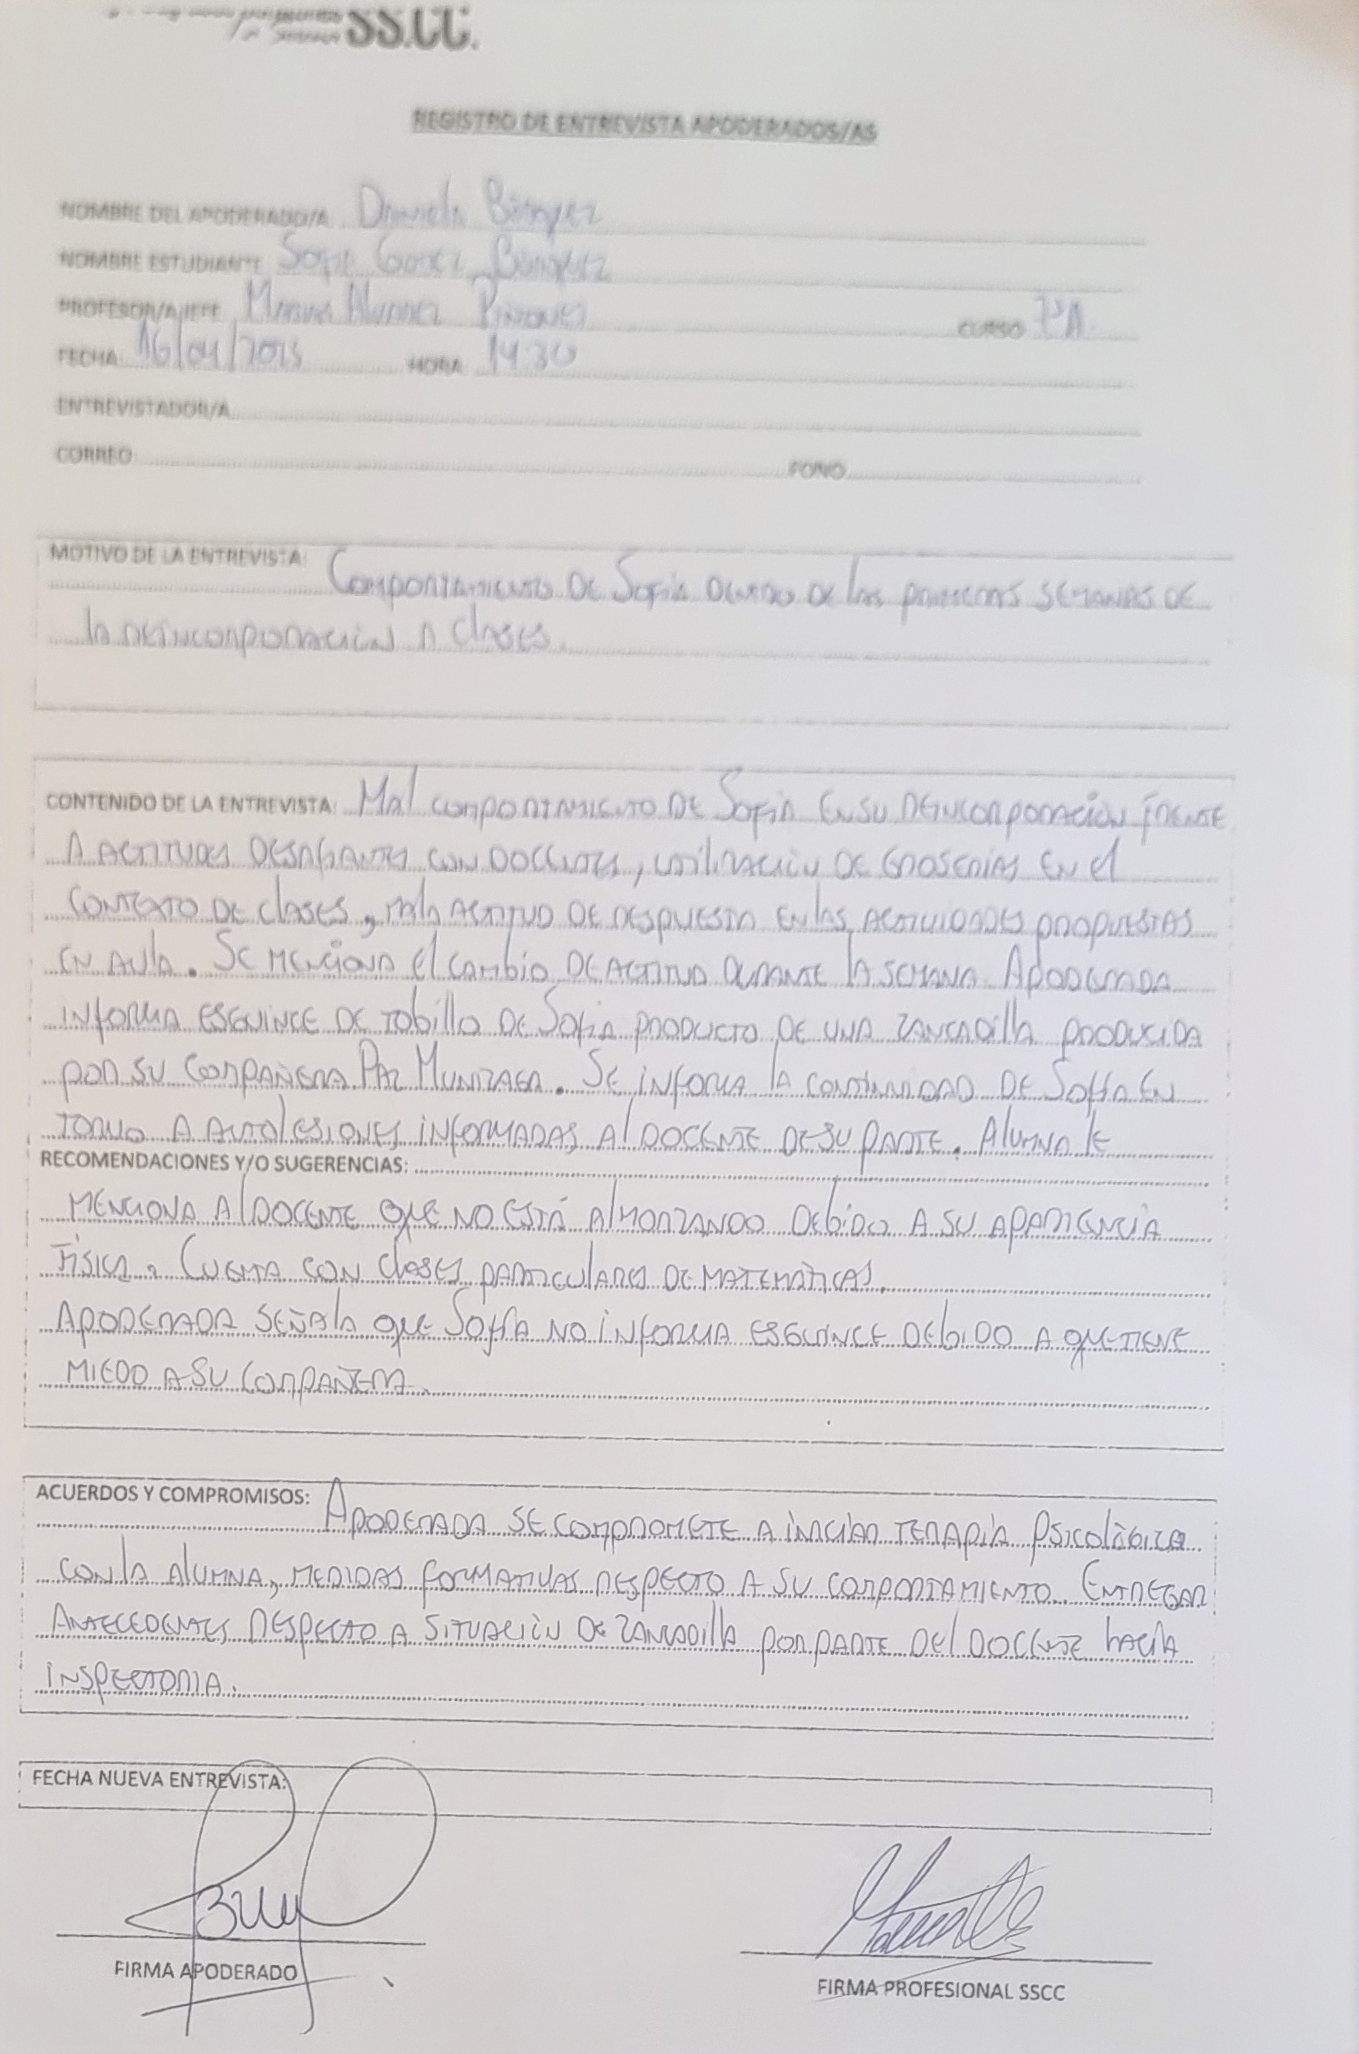 SS.CC.
REGISTRO DE ENTREVISTA APODERADOS/AS
NOMBRE DEL APODERADO/A Daniela
NOMBRE ESTUDIANTE Sofía
PROFESOR/A JEFE Manuel CURSO 7ºA.
FECHA 16/04/2025 HORA 14:30
ENTREVISTADOR/A
CORREO FONO
MOTIVO DE LA ENTREVISTA: COMPORTAMIENTO DE SOFÍA DENTRO DE LAS PRIMERAS SEMANAS DE
LA REINCORPORACIÓN A CLASES.
CONTENIDO DE LA ENTREVISTA: MAL COMPORTAMIENTO DE SOFÍA EN SU REINCORPORACIÓN FRENTE
A ACTITUDES DESAFIANTES CON DOCENTES, UTILIZACIÓN DE GROSERIAS EN EL
CONTEXTO DE CLASES, MALA ACTITUD DE RESPUESTA EN LAS ACTIVIDADES PROPUESTAS
EN AULA. SE MENCIONA EL CAMBIO DE ACTITUD DURANTE LA SEMANA. APODERADA
INFORMA ESGUINCE DE TOBILLO DE SOFÍA PRODUCTO DE UNA ZANCADILLA PRODUCIDA
POR SU COMPAÑERA PAZ MUNIZAGA. SE INFORMA LA CONTINUIDAD DE SOFÍA EN
TORNO A AUTOLESIONES INFORMADAS AL DOCENTE DE SU PARTE. ALUMNA LE
RECOMENDACIONES Y/O SUGERENCIAS:
MENCIONA AL DOCENTE QUE NO ESTÁ ALMORZANDO DEBIDO A SU APARIENCIA
FÍSICA. CUENTA CON CLASES PARTICULARES DE MATEMÁTICAS.
APODERADA SEÑALA QUE SOFÍA NO INFORMA ESGUINCE DEBIDO A QUE TIENE
MIEDO A SU COMPAÑERA.
ACUERDOS Y COMPROMISOS: APODERADA SE COMPROMETE A INICIAR TERAPIA PSICOLÓGICA
CON LA ALUMNA, MEDIDAS FORMATIVAS RESPECTO A SU COMPORTAMIENTO. ENTREGAR
ANTECEDENTES RESPECTO A SITUACIÓN DE ZANCADILLA POR PARTE DEL DOCENTE HACIA
INSPECTORIA.
FECHA NUEVA ENTREVISTA:
FIRMA APODERADO
FIRMA PROFESIONAL SSCC